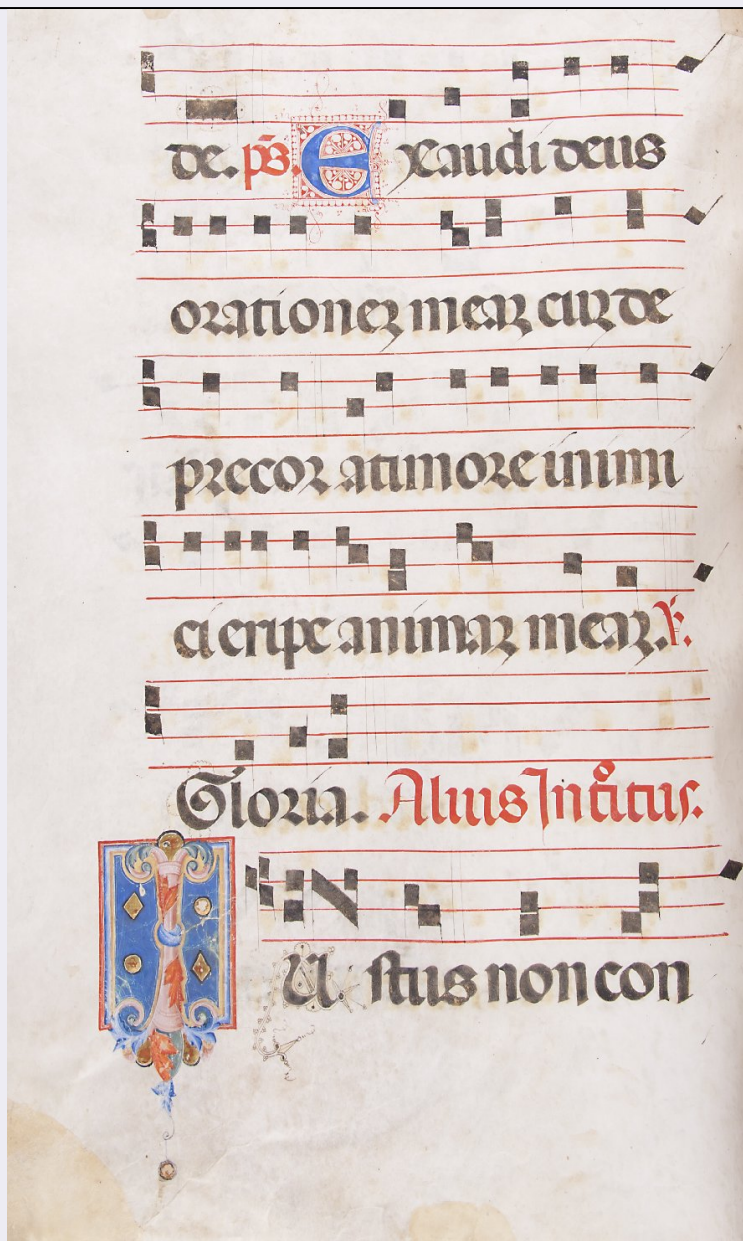 de. ps. Exaudi deus
orationeꝫ meaꝫ cuꝫ de
precor a timore inimi
ci eripe animaꝫ meaꝫ. ℣.
Gloria. Alius Introitus.
IUstus non con